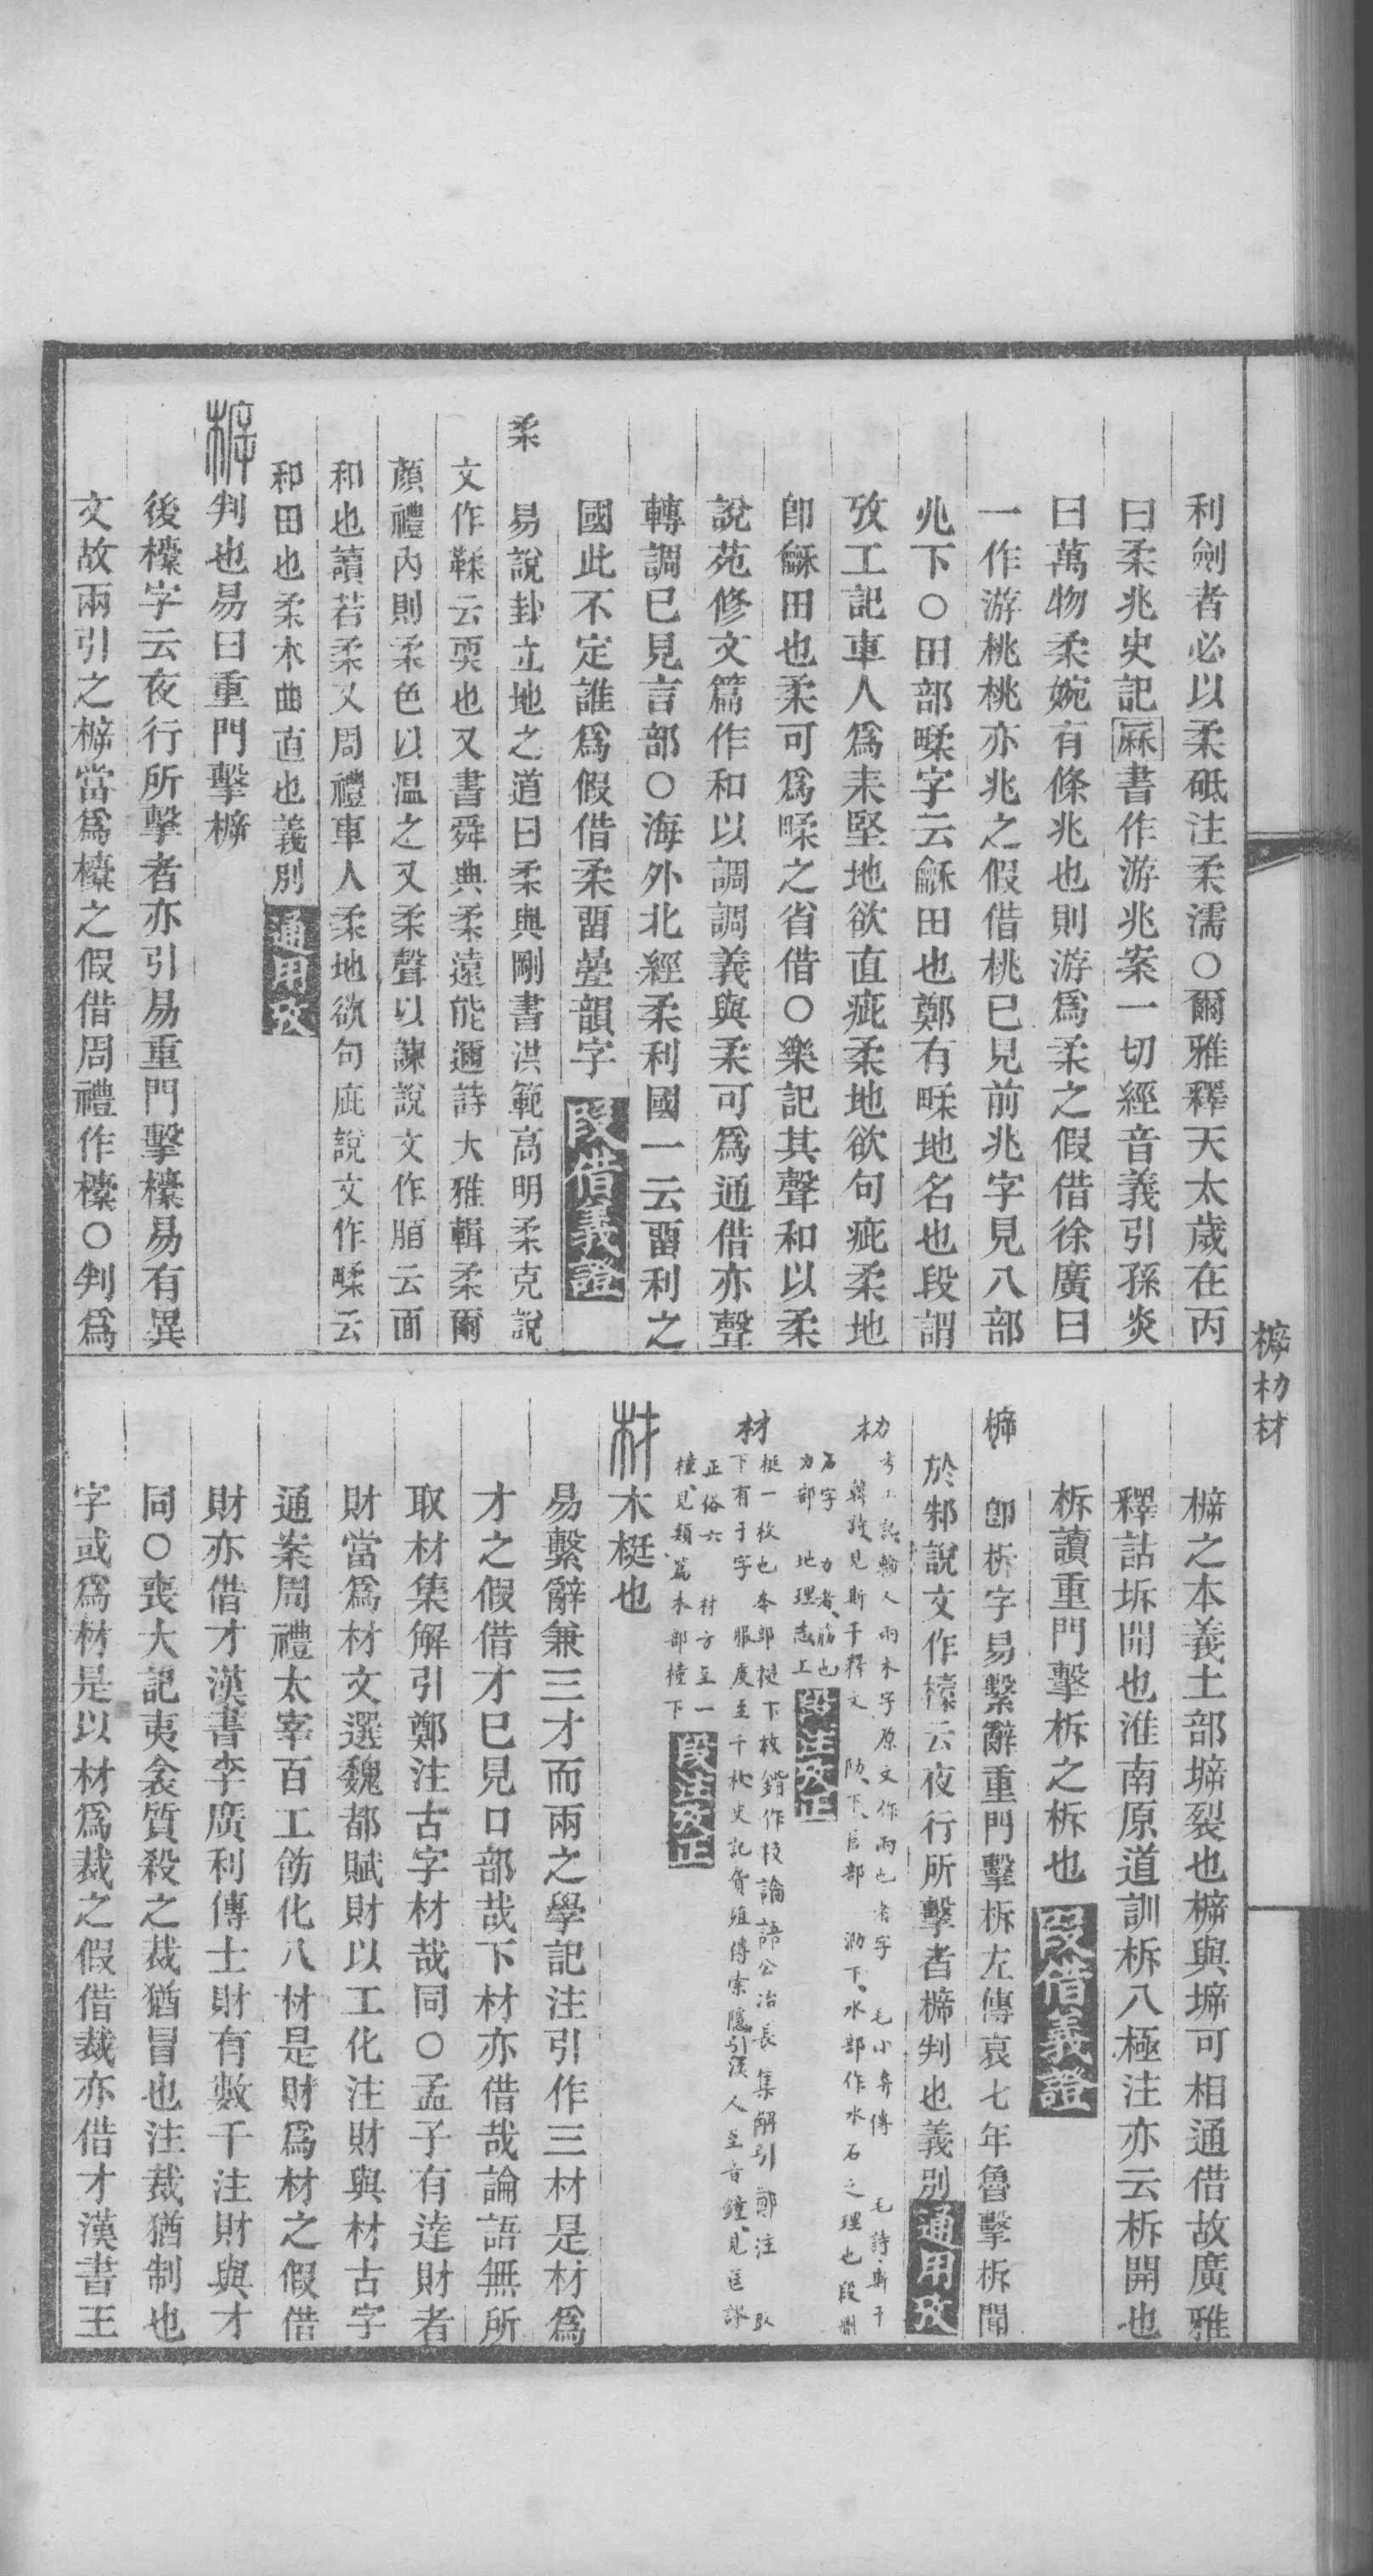 利劍者必以柔砥注柔濡○爾雅釋天太歲在丙
曰柔兆史記厤書作游兆案一切經音義引孫炎
曰萬物柔婉有條兆也則游爲柔之假借徐廣曰
一作游桃桃亦兆之假借桃已見前兆字見八部
𠧞下○田部㽥字云龢田也鄭有㽥地名也段謂
攷工記車人爲耒堅地欲直疵柔地欲句疵柔地
卽龢田也柔可爲㽥之省借○樂記其聲和以柔
說苑修文篇作和以調調義與柔可爲通借亦聲
轉調已見言部○海外北經柔利國一云畱利之
國此不定誰爲假借柔畱疊韻字 段借義證
柔 易說卦立地之道曰柔與剛書洪範高明柔克說
文作鞣云耎也又書舜典柔遠能邇詩大雅輯柔爾
顏禮內則柔色以温之又柔聲以諫說文作腬云面
和也讀若柔又周禮車人柔地欲句庛說文作㽥云
和田也柔木曲直也義別 通用攷
㯕判也易曰重門擊㯕
後㯱字云夜行所擊者亦引易重門擊㯱易有異
文故兩引之㯕當爲㯱之假借周禮作㯱○判爲
㯕之本義土部𡍩裂也㯕與𡍩可相通借故廣雅
釋詁坼開也淮南原道訓柝八極注亦云柝開也
柝讀重門擊柝之柝也 段借義證
㯕 卽柝字易繫辭重門擊柝左傳哀七年魯擊柝聞
於邾說文作㯱云夜行所擊者㯕判也義別 通用攷
朸 考工記輪人兩木字原文作兩也者字 毛小弁傳 毛詩斯干
韓說見斯干釋文 阞下𨸏部 泐下水部作水石之理也段刪
石字 力者筋也
力部 地理志工 段注攷正
材 梃一枚也本部梃下枚錯作枝論語公冶長集解引鄭注 取
下有于字 服虔至千枚史記貨殖傳索隱引漢人至音鐘見匡謬
正俗六 材方至一
橦見類篇木部橦下 段注攷正
材木梃也
易繫辭兼三才而兩之學記注引作三材是材爲
才之假借才已見口部哉下材亦借哉論語無所
取材集解引鄭注古字材哉同○孟子有達財者
財當爲材文選魏都賦財以工化注財與材古字
通案周禮太宰百工飭化八材是財爲材之假借
財亦借才漢書李廣利傳士財有數千注財與才
同○喪大記夷衾質殺之裁猶冒也注裁猶制也
字或爲材是以材爲裁之假借裁亦借才漢書王
㯕朸材